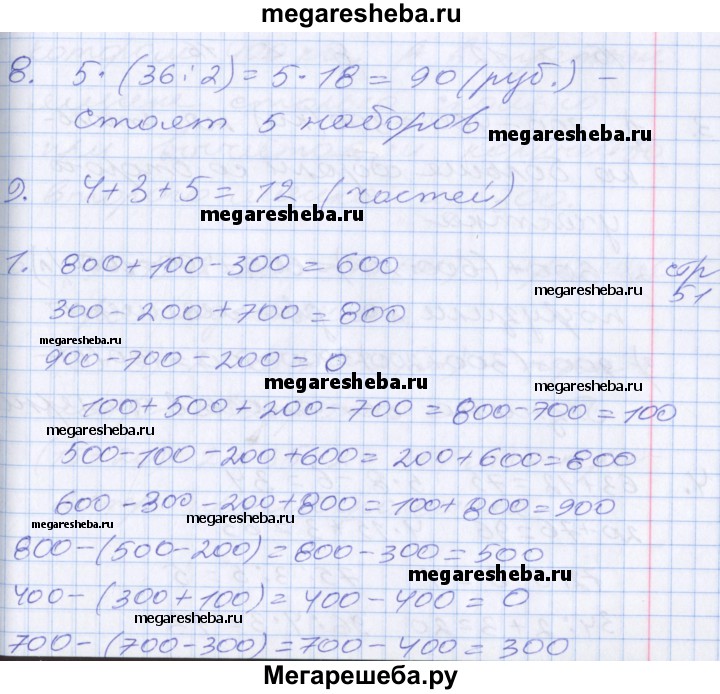 megaresheba.ru
8. 5·(36:2)=5·18=90(руб.)–
стоят 5 наборов
megaresheba.ru
9. 4+3+5=12 (частей)
megaresheba.ru
1. 800+100-300=600
стр
51
megaresheba.ru
300-200+700=800
megaresheba.ru
900-700-200=0
megaresheba.ru
megaresheba.ru
100+500+200-700=800-700=100
megaresheba.ru
500-100-200+600=200+600=800
600-300-200+800=100+800=900
megaresheba.ru
megaresheba.ru
800-(500-200)=800-300=500
megaresheba.ru
400-(300+100)=400-400=0
megaresheba.ru
700-(700-300)=700-400=300
Мегарешеба.ру